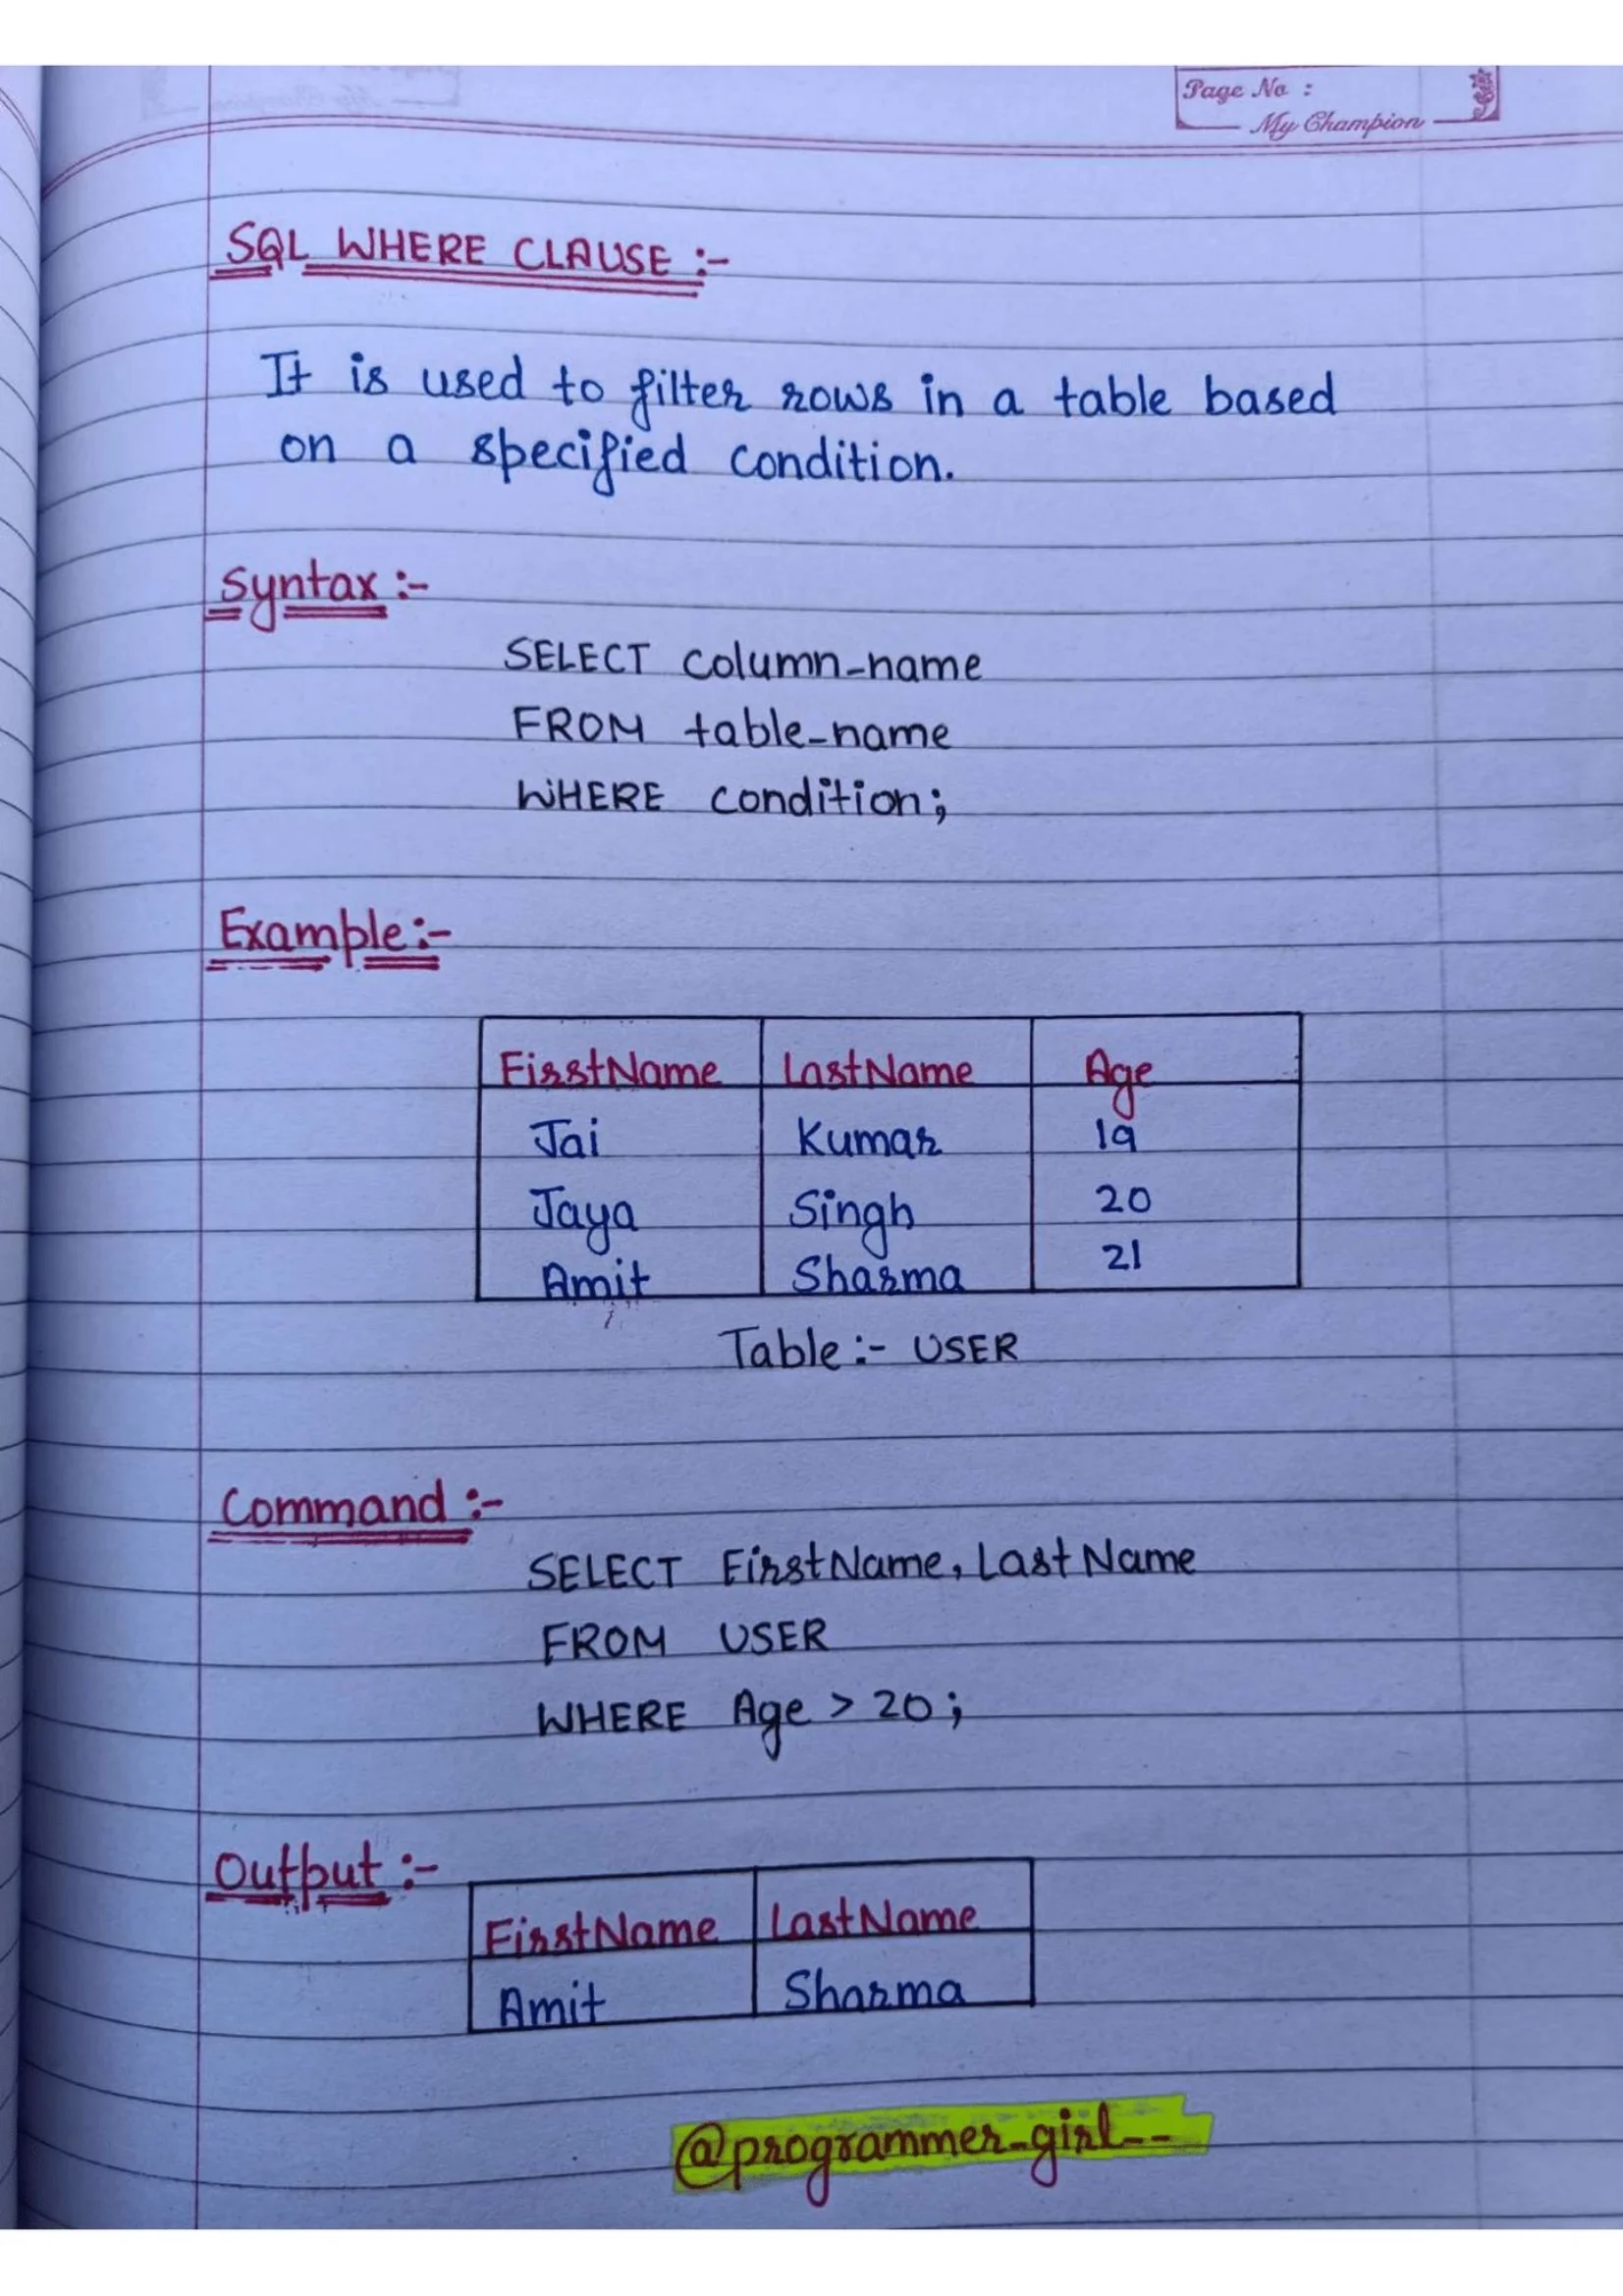 Page No :
My Champion
SQL WHERE CLAUSE :-
It is used to filter rows in a table based
on a specified condition.
Syntax :-
SELECT column_name
FROM table_name
WHERE condition;
Example:-
FirstName LastName Age
Jai Kumar 19
Jaya Singh 20
Amit Sharma 21
Table :- USER
Command :-
SELECT FirstName, LastName
FROM USER
WHERE Age > 20;
Output :-
FirstName LastName
Amit Sharma
@programmer_girl__